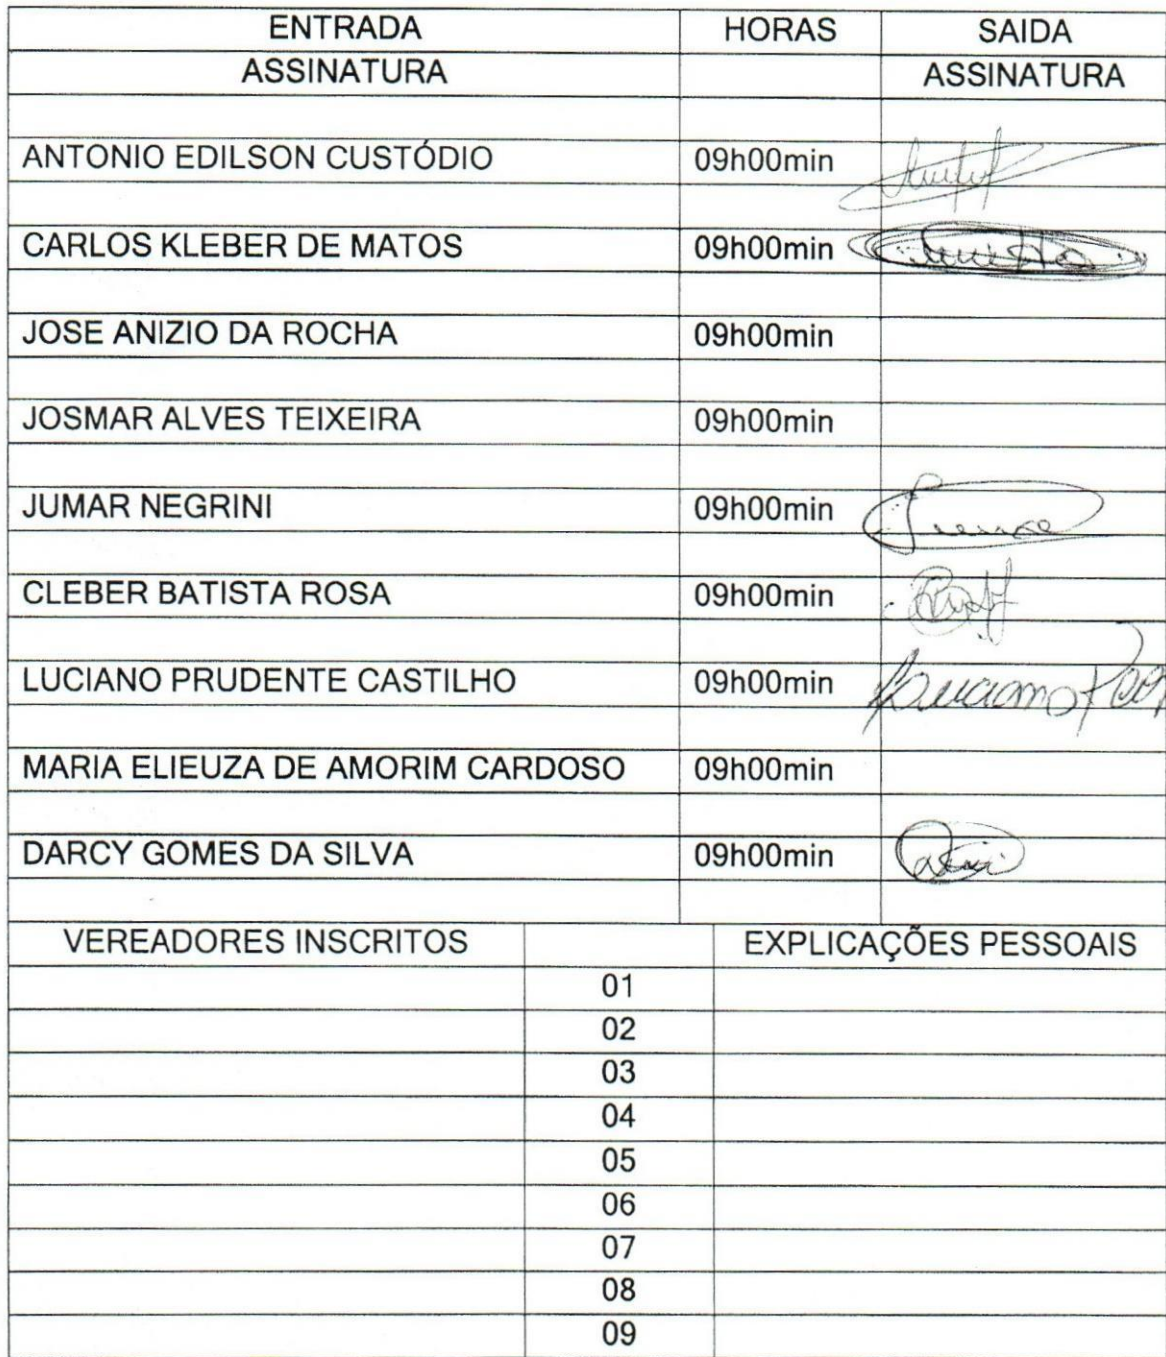 ENTRADA HORAS SAIDA
ASSINATURA ASSINATURA
ANTONIO EDILSON CUSTÓDIO 09h00min
CARLOS KLEBER DE MATOS 09h00min
JOSE ANIZIO DA ROCHA 09h00min
JOSMAR ALVES TEIXEIRA 09h00min
JUMAR NEGRINI 09h00min
CLEBER BATISTA ROSA 09h00min
LUCIANO PRUDENTE CASTILHO 09h00min Luciano
MARIA ELIEUZA DE AMORIM CARDOSO 09h00min
DARCY GOMES DA SILVA 09h00min
VEREADORES INSCRITOS EXPLICAÇÕES PESSOAIS
01
02
03
04
05
06
07
08
09